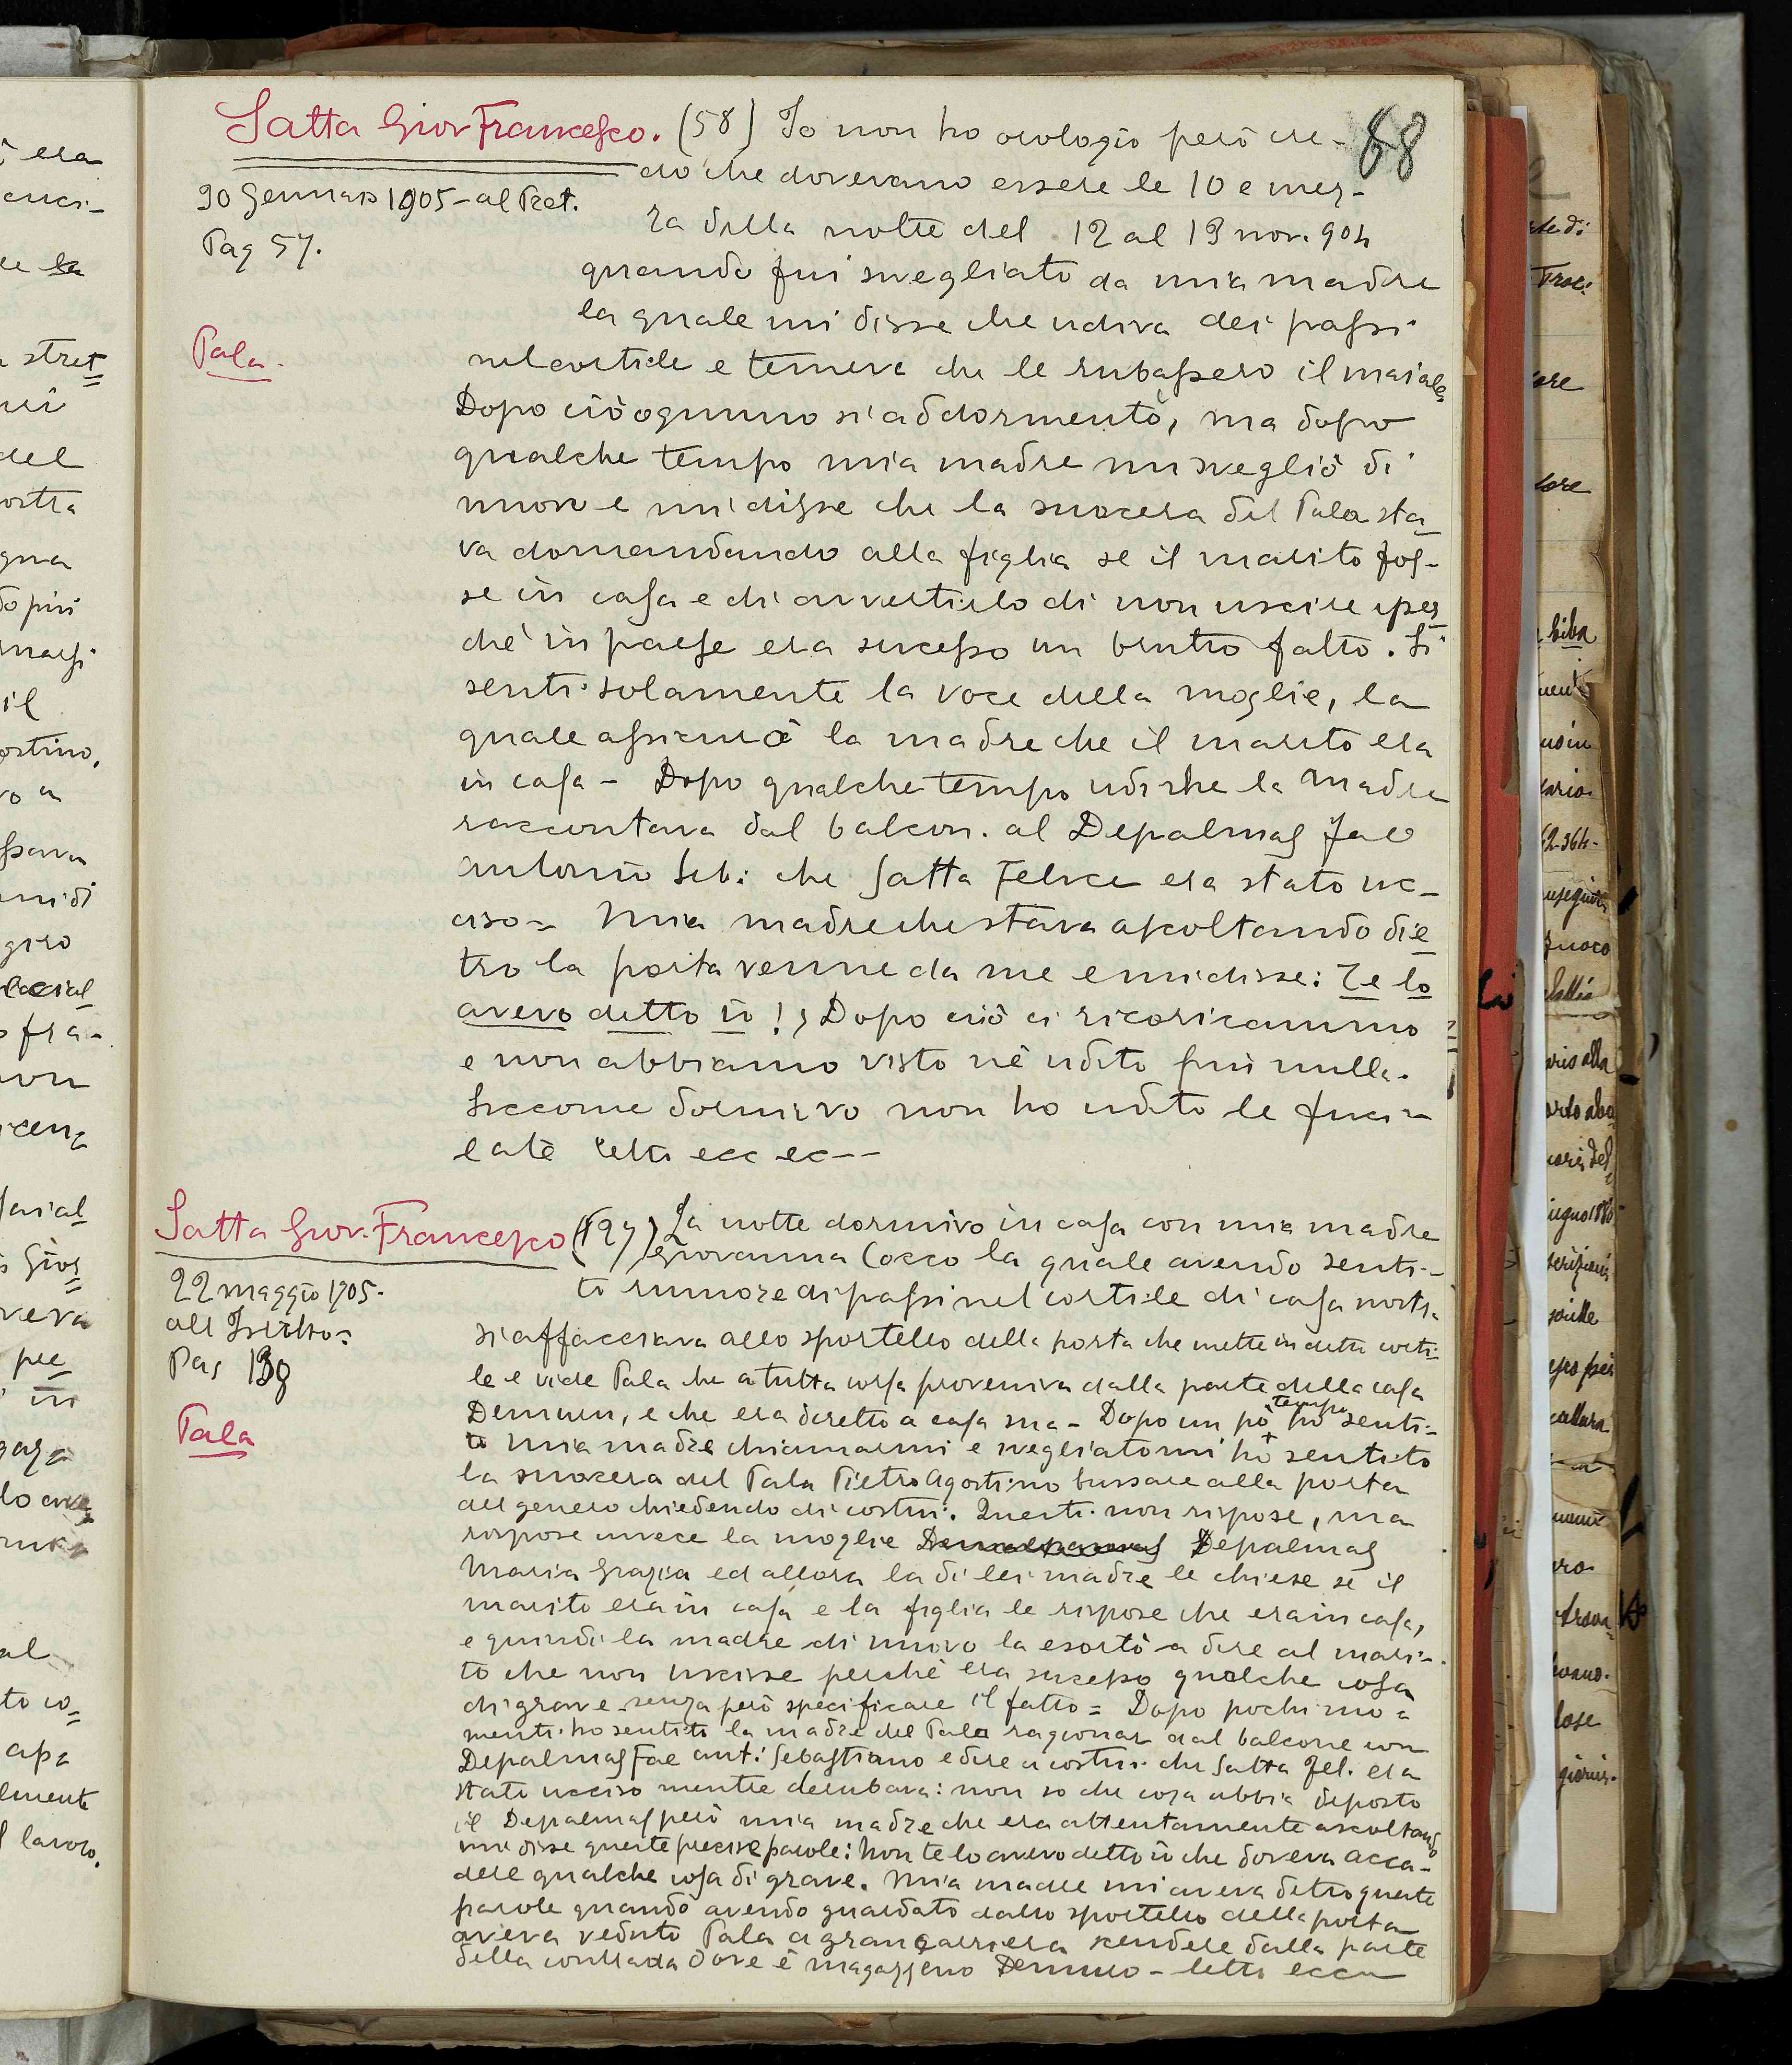 Satta Giov Francesco. (58) Io non ho orologio però cre- 68
do che dovevano essere le 10 e mez-
30 Gennaio 1905 - al Pret.
za della notte del 12 al 13 nov. 904
Pag 57.
quando fui svegliato da mia madre
la quale mi disse che udiva dei passi
Pala.
nel cortile e temeva che le rubassero il maiale
Dopo ciò ognuno si addormentò, ma dopo
qualche tempo mia madre mi svegliò di
nuovo e mi disse che la suocera del Pala sta-
va domandando alla figlia se il marito fos-
se in casa e di avvertirlo di non uscire per
chè in paese era sucesso un brutto fatto. Si
sentì solamente la voce della moglie, la
quale assicurò la madre che il marito era
in casa - Dopo qualche tempo udì che la madre
raccontava dal balcon. al Depalmas Fae
Antonio Seb: che Satta Felice era stato uc-
ciso = Mia madre che stava ascoltando die
tro la porta venne da me e mi disse: Te lo
avevo detto io! Dopo ciò ci ricoricammo
e non abbiamo visto nè udito più nulla.
Siccome dormivo non ho udito le fuci-
late letto ecc ec--
Satta Giov. Francesco (127) La notte dormivo in casa con mia madre
Giovanna Cocco la quale avendo senti-
22 maggio 1905.
to rumore di passi nel cortile di casa nostr.
all Istutto =
si affacciava allo sportello della porta che mette in detto corti-
Pag 138
le e vide Pala che a tutta corsa proveniva dalla parte della casa
Pala
Demuru, e che era diretto a casa sua - Dopo un pò tempo ho senti-
to mia madre chiamarmi e svegliatomi ho sentito
la suocera del Pala Pietro Agostino bussare alla porta
del genero chiedendo di costui. Questi non rispose, ma
rispose invece la moglie Depalmas
Maria Grazia ed allora la di lei madre le chiese se il
marito era in casa e la figlia le rispose che era in casa,
e quindi la madre di nuovo la esortò a dire al mari-
to che non uscisse perchè era sucesso qualche cosa
di grave senza però specificare il fatto = Dopo pochi mo=
menti ho sentito la madre del Pala ragionar dal balcone con
Depalmas Fae Ant: Sebastiano e dire a costui che Satta Fel. era
stato ucciso mentre derubava: non so che cosa abbia deposto
il Depalmas però mia madre che era attentamente ascoltando
mi disse queste precise parole: Non te lo avevo detto io che doveva acca-
dere qualche cosa di grave. Mia madre mi aveva detto queste
parole quando avendo guardato dallo sportello della porta
aveva veduto Pala a gran carriera scendere dalla parte
della contrada dove è magazzeno Demuro - letto ecc